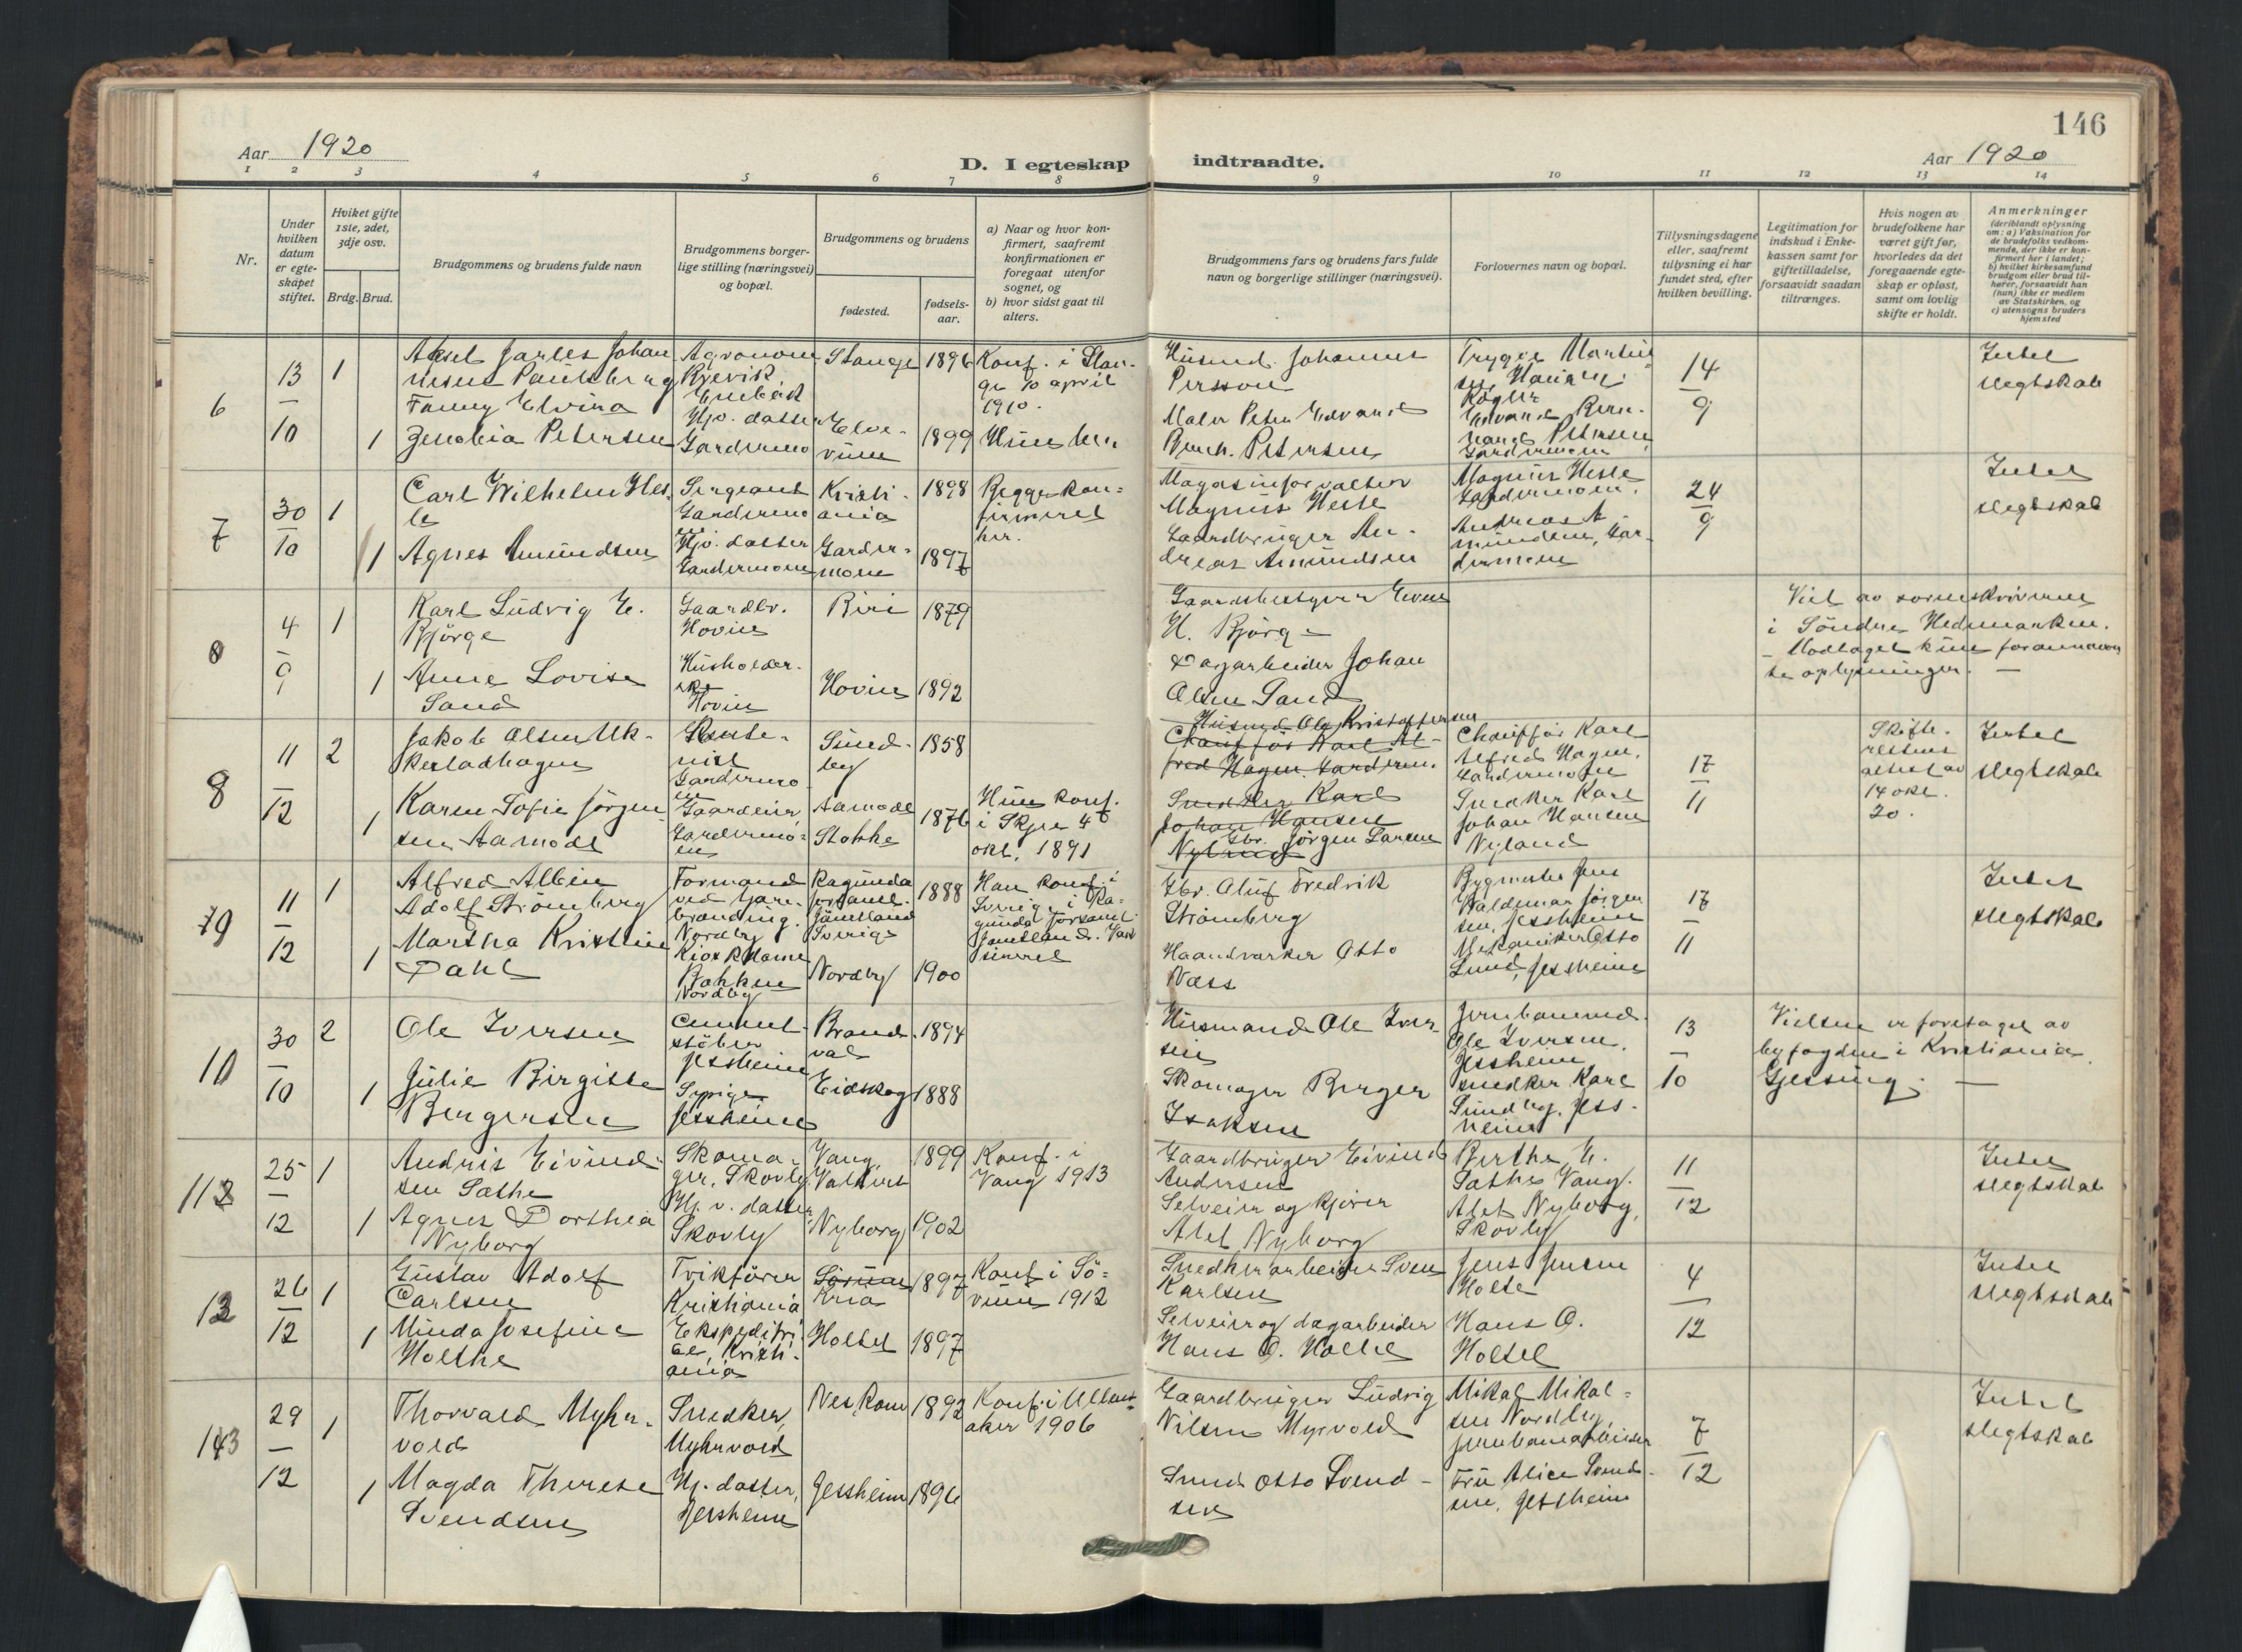 146
Aar 1920
D. I egteskap indtraadte.
Aar 1920
1 2 3 4 5 6 7 8 9 10 11 12 13 14
Nr.
Under hvilken datum er egteskapet stiftet.
Hviket gifte 1ste, 2det, 3dje osv.
Brdg. Brud.
Brudgommens og brudens fulde navn
Brudgommens borgerlige stilling (næringsvei) og bopæl.
Brudgommens og brudens
fødested.
fødselsaar.
a) Naar og hvor konfirmert, saafremt konfirmationen er foregaat utenfor sognet, og
b) hvor sidst gaat til alters.
Brudgommens fars og brudens fars fulde navn og borgerlige stillinger (næringsvei).
Forlovernes navn og bopæl.
Tillysningsdagene eller, saafremt tillysning ei har fundet sted, efter hvilken bevilling.
Legitimation for indskud i Enkekassen samt for giftetilladelse, forsaavidt saadan tiltrænges.
Hvis nogen av brudefolkene har været gift før, hvorledes da det foregaaende egteskap er opløst, samt om lovlig skifte er holdt.
Anmerkninger
(deriblandt oplysning om: a) Vaksination for de brudefolks vedkommende, der ikke er konfirmert her i landet;
b) hvilket kirkesamfund brudgom eller brud tilhører, forsaavidt han (hun) ikke er medlem av Statskirken, og
c) utensogns bruders hjemsted
6
13
10
1
Johan
Fanny Elvina
1 Zenobia Petersen
Agronom
Hjv. datter
Gardermo
Stange 1896
1899
Konf. i Stange 10 april
1910.
Husmd. Johannes
Persson
Maler Peter Edvard
Bernh. Petersen
Petersen
Gardermoen
14
9
Intet
slegtskab
7
30
10
1
Carl Wilhelm Hesle
1 Agnes Amundsen
Sergeant
Gardermoen
Hjv. datter
Gardermoen
Kristiania
Gardermoen
1898
1897
Begge konfirmeret
her.
Magasinforvalter
Magnus Hesle
Gaardbruger Andreas Amundsen
Magnus Hesle
Gardermoen.
Andreas Amundsen, Gardermoen
24
9
Intet
slegtskab
8
4
9
1
Karl Ludvig E.
Bjørge
1 Anne Lovise
Sand
Gaardbr.
Hovin
Husholderske
Hovin
Biri 1879
Hovin 1892
Gaardsbestyrer Even
H. Bjørge
Dagarbeider Johan
Olsen Sand
Viet av sorenskriveren
i Søndre Hedemarken.
– Modtaget kun forannævnte oplysninger. –
8
11
12
2
Jakob Olsen
1 Karen Sofie Jørgensen Aamodt
Gardermoen
Gardermoen
Sundby
Aamodt
Stokke
1858
1876
Hun konf.
i Skjee 4
okt. 1891
Husmd. Ole Kristoffersen
Chauffør Karl Alfred Hagen. Garderm.
Snedker Karl
Johan Hansen
Gbr. Jørgen Larsen
Chauffør Karl
Alfred Hagen,
Gardermoen
Snedker Karl
Johan Hansen
Nyland
17
11
Skifterettens
attest av
14 okt.
20.
Intet
slegtskab
9
11
12
1
Alfred Albin
Adolf Strömberg
1 Martha Kristine
Dahl
Formand
Nordby
Bakken
Nordby
Ragunda
Jämtland
Sverige
Nordby
1888
1900
Han konf. i
Sverige i Ragunda
Jämtland.
Gbr. Oluf Fredrik
Strömberg
Haandværker Otto
Næss
Bygmester Jens
Waldemar Jørgensen, Jessheim
Mekaniker Otto
Lund, Jessheim
17
11
Intet
slegtskab
10
30
10
2
Ole Iversen
1 Julie Birgitte
Bergersen
Cementstøber
Jessheim
Sypige
Jessheim
Brandval
Eidskog
1894
1888
Husmand Ole Iversen
Skomager Berger
Isaksen
Ole Iversen,
Jessheim
snedker Karl
Sundby, Jessheim
13
10
Vielsen er foretaget av
byfogden i Kristiania.
Gjessing. –
25
12
1
Andris Eivindsen Sæthe
1 Agnes Dorthea
Nyborg
Skomager, Skovly
Hj. v. datter
Skovly
Vang,
Valdres
Nyborg
1899
1902
Konf. i
Vang 1913
Gaardbruger Eivind
Andersen
Selveier og kjører
Abel Nyborg
Berthe E.
Sæthe Vang.
Abel Nyborg,
Skovly
11
12
Intet
slegtskab
26
12
1
Gustav Adolf
Carlsen
1 Minda Josefine
Holthe
Kristiania
Kristiania
Kria
Holtet
1897
1897
Konf. i Sørum 1912
Snedkerarbeider Sven
Karlsen
Selveier og dagarbeider
Hans O. Holtet
Jens Jensen
Holte
Hans O.
Holtet
4
12
Intet
slegtskab
29
12
1
Thorvald Myhrvold
1 Magda Therese
Svendsen
Snedker,
Myhrvold
Hj. datter,
Jessheim
Neskom
Jessheim
1892
1896
Konf. i Ullensaker 1906
Gaardbruger Ludvig
Nilsen Myrvold
Smed Otto Svendsen
Mikal Mikalsen Nordby,
jernbanearbeider
Fru Alice Svendsen, Jessheim
7
12
Intet
slegtskab